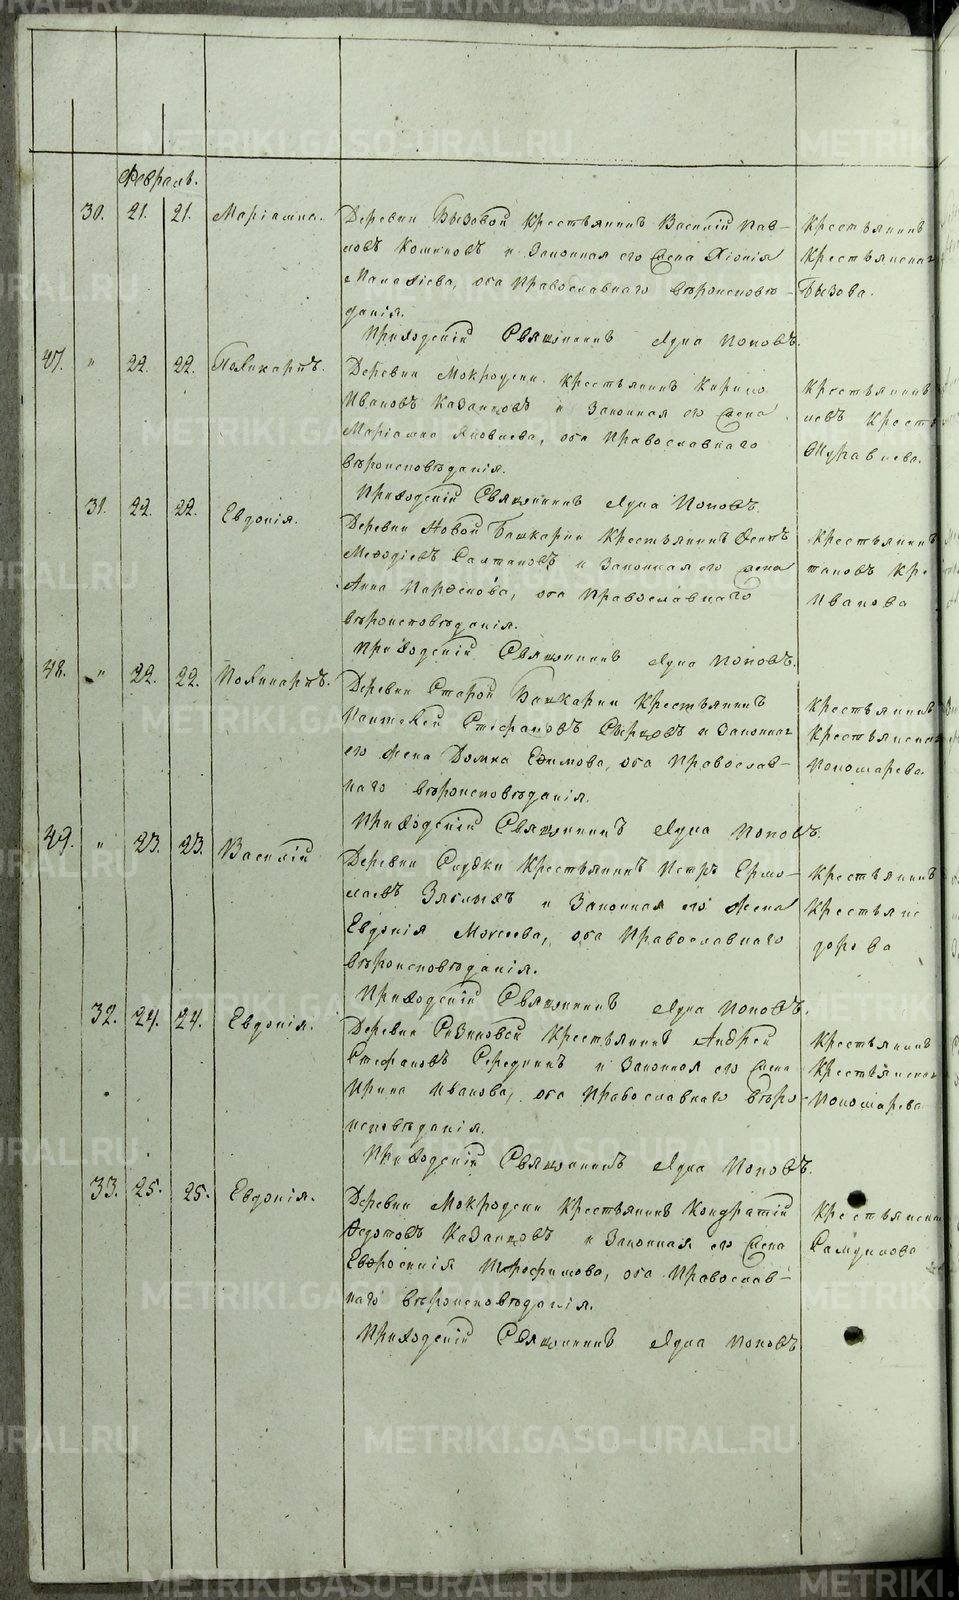 Февраль.
30. 21. 21. Маріамна. Деревни Бызовой крестьянинъ Василій Пав-
ловъ Кошковъ и законная его жена Хіонія
, оба Православнаго вѣроисповѣ-
данія.
Приходскій Священникъ Лука Поповъ.
крестьянинъ
крестьянская
Бызова.
47. " 22. 22. Поликарпъ. Деревни Мокродски крестьянинъ Кирило
Ивановъ Казанцовъ и законная его жена
Маріамна Яковлева, оба Православнаго
вѣроисповѣданія.
Приходскій Священникъ Лука Поповъ.
крестьянинъ
левъ крест
Журавлева.
31. 22. 22. Евдокія. Деревни Новой Башкарки крестьянинъ Осипъ
Меѳодіевъ Салтановъ и законная его жена
Анна Парѳенова, оба Православнаго
вѣроисповѣданія.
Приходскій Священникъ Лука Поповъ.
крестьянинъ
тановъ кре
Иванова
48. " 22. 22. Поликарпъ. Деревни Старой Башкарки крестьянинъ
Пантелей Стефановъ Сырцовъ и законная
его жена Домна Ефимова, оба Православ-
наго вѣроисповѣданія.
Приходскій Священникъ Лука Поповъ.
крестьянинъ
крестьянская
Пономарева
49. " 23. 23. Василій Деревни Слудки крестьянинъ Петръ Ермо-
лаевъ Зяблыхъ и законная его жена
Евдокія Моисеева, оба Православнаго
вѣроисповѣданія.
Приходскій Священникъ Лука Поповъ.
крестьянинъ
крестьянс
дорова
32. 24. 24. Евдокія. Деревни крестьянинъ Андрей
Стефановъ Серединъ и законная его жена
Ирина Иванова, оба Православнаго вѣро-
исповѣданія.
Приходскій Священникъ Лука Поповъ.
крестьянинъ
крестьянская
Пономарева
33. 25. 25. Евдокія. Деревни Мокродски крестьянинъ Кондратій
Ѳедотовъ Казанцовъ и законная его жена
Евфросинія Трофимова, оба Православ-
наго вѣроисповѣданія.
Приходскій Священникъ Лука Поповъ
крестьянская
Самуилова
METRIKI.GASO-URAL.RU